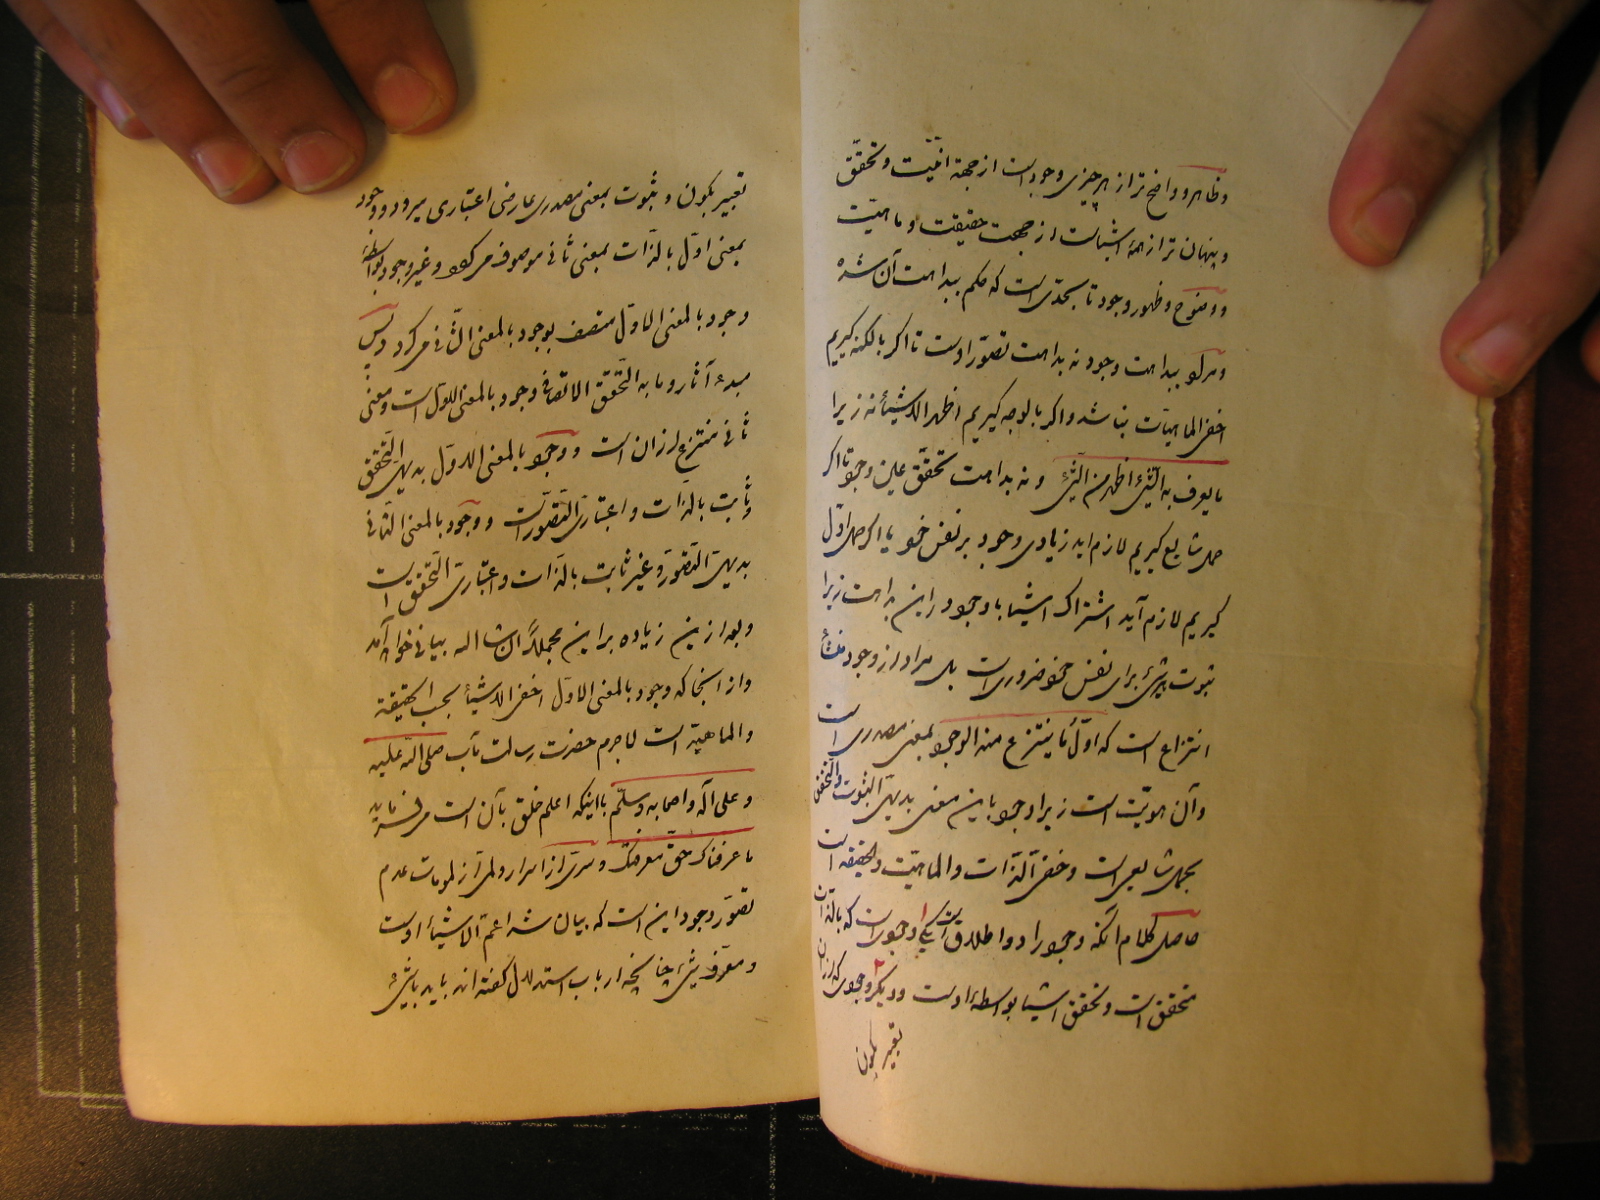 وظاهر و واضح تر از هر چیزی وجود است از جهة انّیّت و تحقّق
و پنهان تر از همهٔ اشیاست از جهت حقیقت و ماهیّت
و وضوح و ظهور وجود تا بحدّی است که حکم ببداهت آن شده
ببداهت وجود نه بداهت تصوّر اوست تا اگر بالکنه گیریم
اخفی الماهیّات نباشد و اگر بالوجه گیریم اظهر الاشیاء نه زیرا
ما یعرف به الشّیٔ اظهر من الشّیٔ و نه بداهت تحقّق عین وجود تا اگر
حمل شایع گیریم لازم اید زیادی وجود بر نفس خود یا اگر حمل اوّل
گیریم لازم آید اشتراک اشیا با وجود در این بداهت زیرا
ثبوت هر شیٔ برای نفس خود ضروریست بل مراد از وجود منشأ
انتزاع است که اوّلاً ما ینتزع منه الوجود بمعنی مصدری است
و آن هویّتست زیرا وجود باین معنی بدیهیّ الثبوت والتّحقق
بحمل شایع است و خفیّ الذّات والماهیّت والحقیقه است
حاصل کلام آنکه وجود را دو اطلاق است یکی ۱ وجودیست که بالذّات
متحقق است و تحقق اشیا بواسطهٔ اوست و دیگر ۲ وجودی که از آن
تعبیر بکون
تعبیر بکون و ثبوت بمعنی مصدری عارضی اعتباری میرود و وجود
بمعنی اوّل بالذّات بمعنی ثانی موصوف میگردد و غیر وجود بواسطهٔ
وجود بالمعنی الاوّل متصف بوجود بالمعنی الثّانی میگردد پس
مبدء آثار و ما به التّحقق الاتصافی وجود بالمعنی الاوّل است و معنی
ثانی منتزع از آن است و وجود بالمعنی الاوّل بدیهیّ التّحقق
و ثابت بالذّات و اعتباریّ التّصوّر است و وجود بالمعنی الثّانی
بدیهیّ التّصوّر و غیر ثابت بالذّات و اعتباریّ التّحقق است
و بعد ازین زیاده بر این مجملاً ان شا اله بیانی خواهد آمد
و از آنجا که وجود بالمعنی الاوّل اخفی الاشیاء بحسب الحقیقة
والماهیّة است لاجرم حضرت رسالت مآب صلی اللّه علیه
و علی آله و اصحابه و سلّم با اینکه اعلم خلق بآن است میفرماید
ما عرفناک حقّ معرفتک و سرّی از اسرار و لمّی از لمیات عدم
تصوّر وجود این است که بیان شد اعمّ الاشیاء اوست
و معرّف شیٔ چنانچه ارباب استدلال گفته اند باید باشیٔ